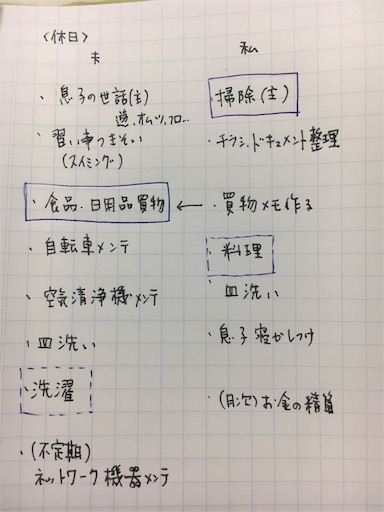 〈休日〉
夫
・息子の世話(主)
遊、オムツ、フロ…
・習い事つきそい
(スイミング)
・食品・日用品買物 ←
・自転車メンテ
・空気清浄機メンテ
・皿洗い
・洗濯
・(不定期)
ネットワーク機器メンテ
私
・掃除(主)
・チラシ、ドキュメント整理
・買物メモ作る
・料理
・皿洗い
・息子寝かしつけ
・(月次)お金の精算